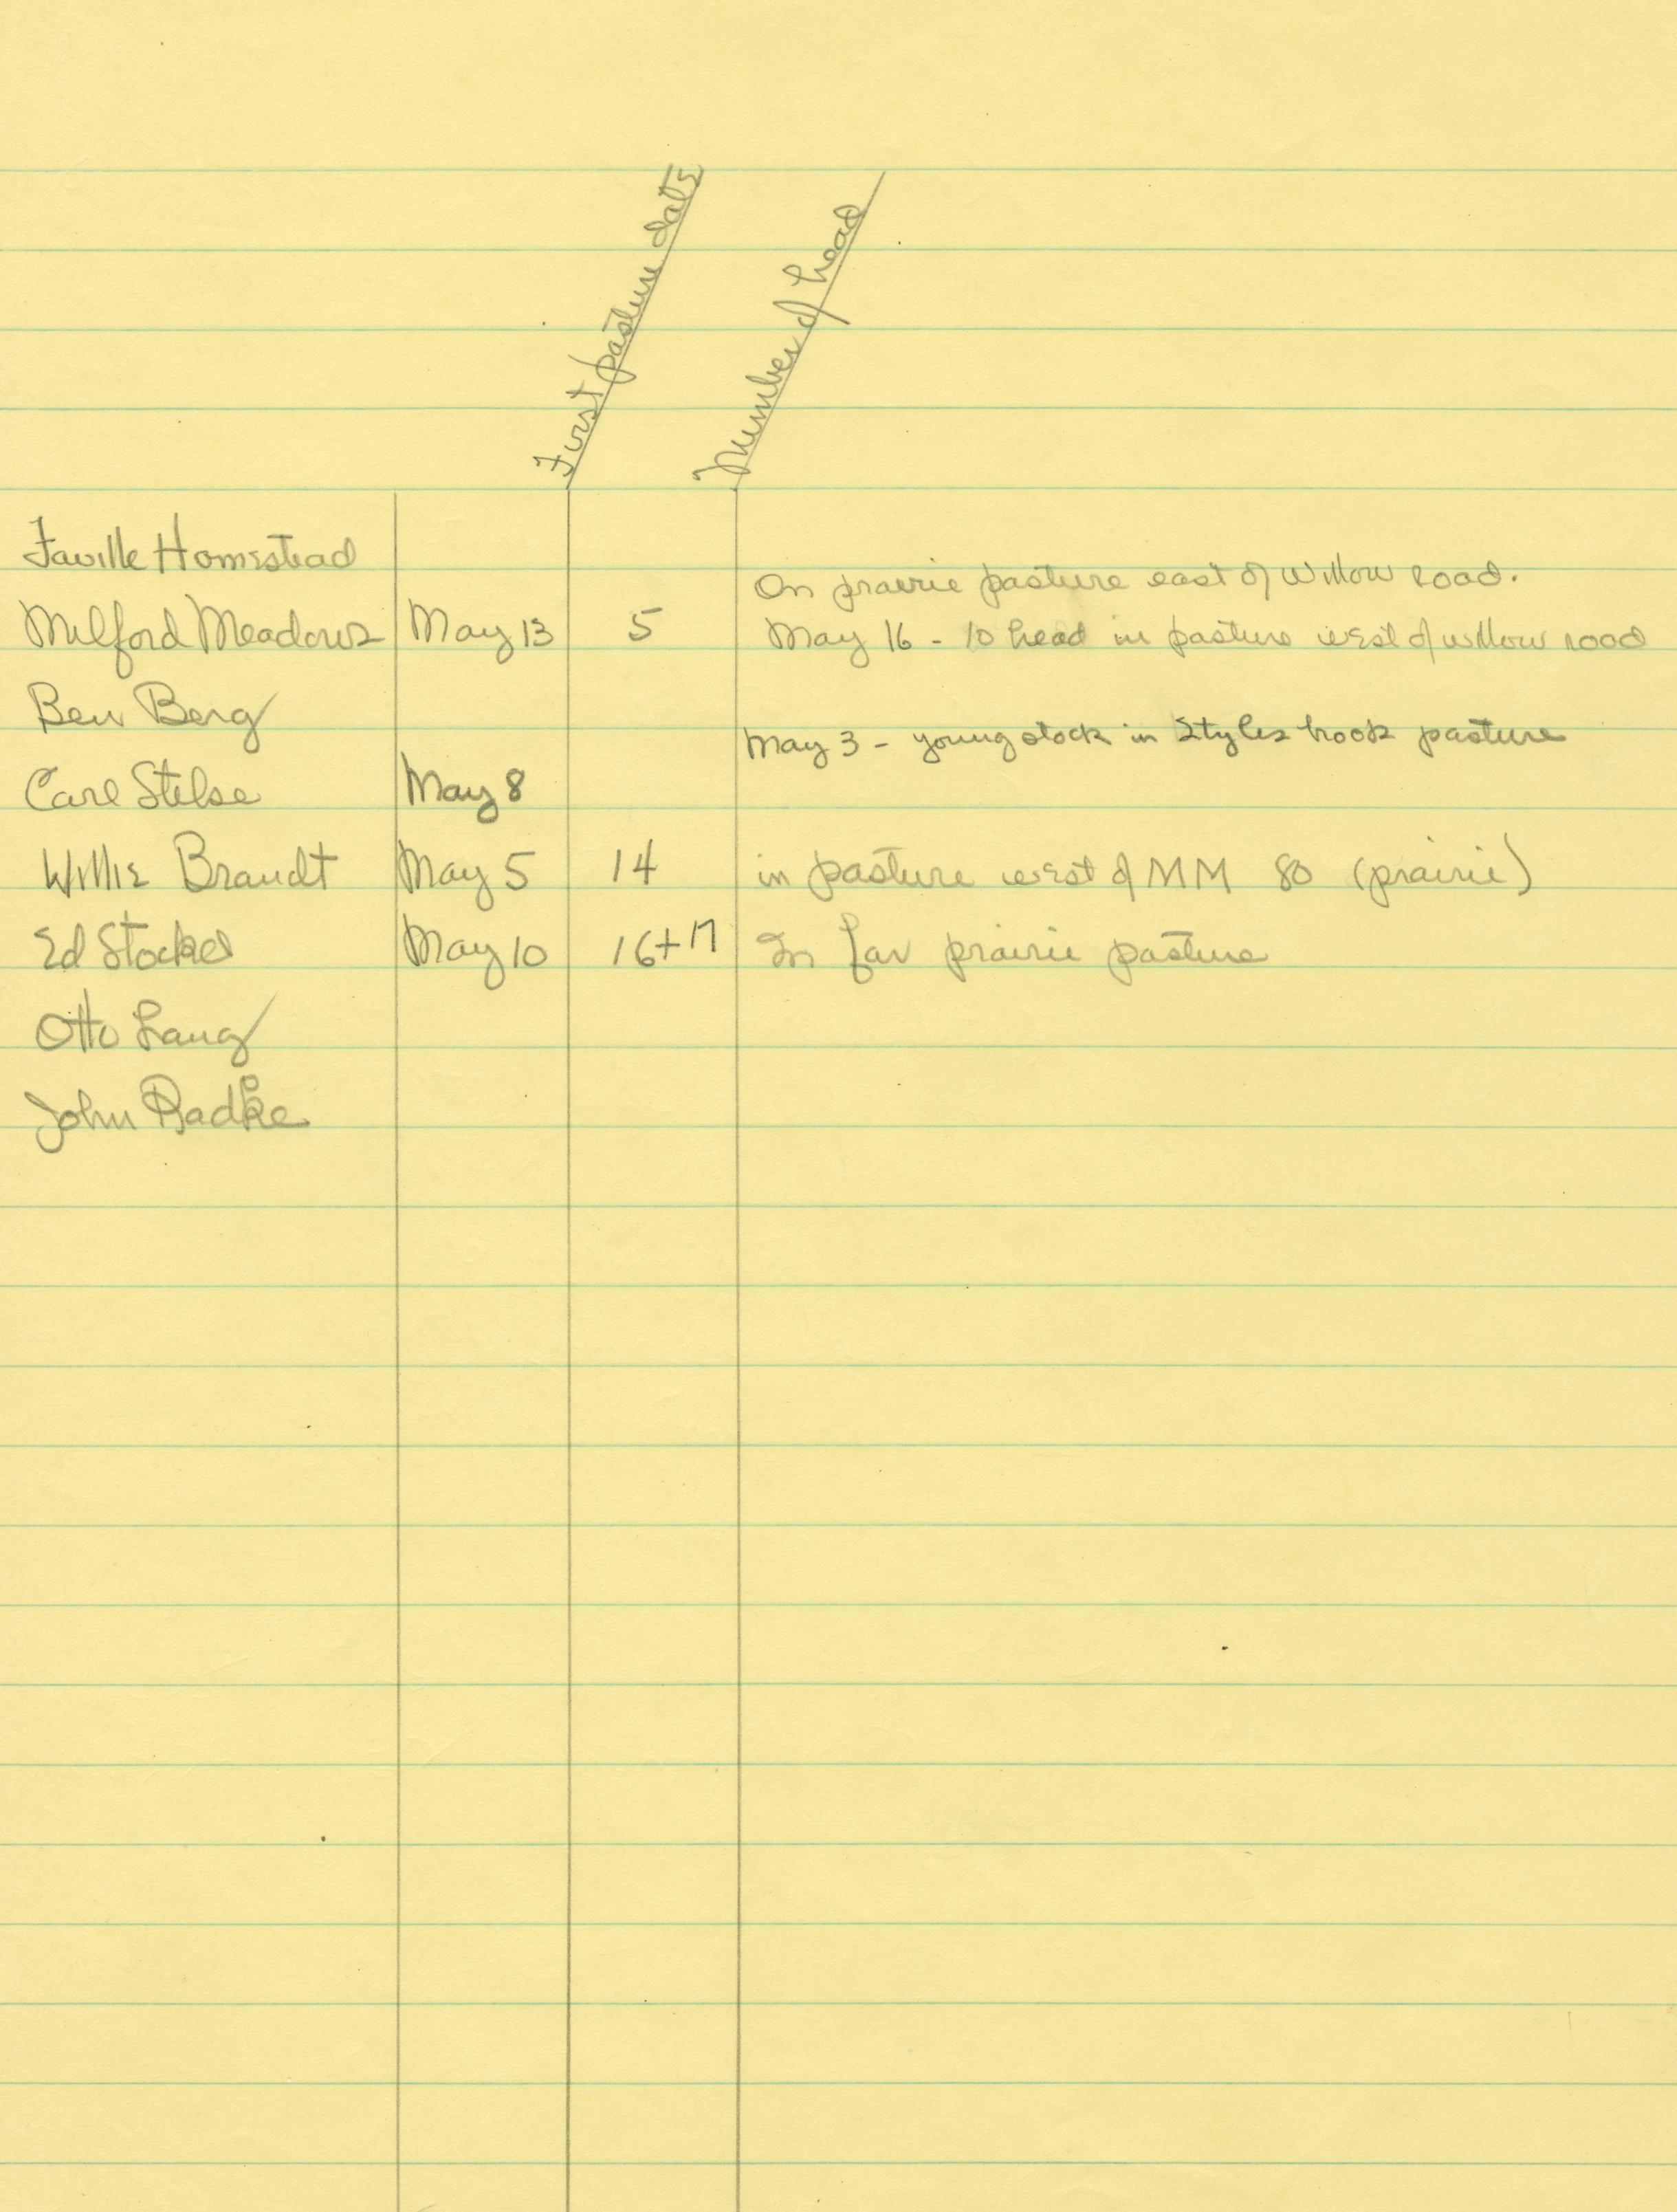 First pasture date
Number of head
Faville Homestead
On prairie pasture east of Willow road.
Milford Meadows May 13 5 May 16 - 10 head in pasture west of willow road
Ben Berg
May 3 - young stock in Styles hook pasture
Carl Stelse May 8
Willie Brandt May 5 14 in pasture west of MM 80 (prairie)
Ed Stockel May 10 16+17 In far prairie pasture
Otto Lang
John Radke